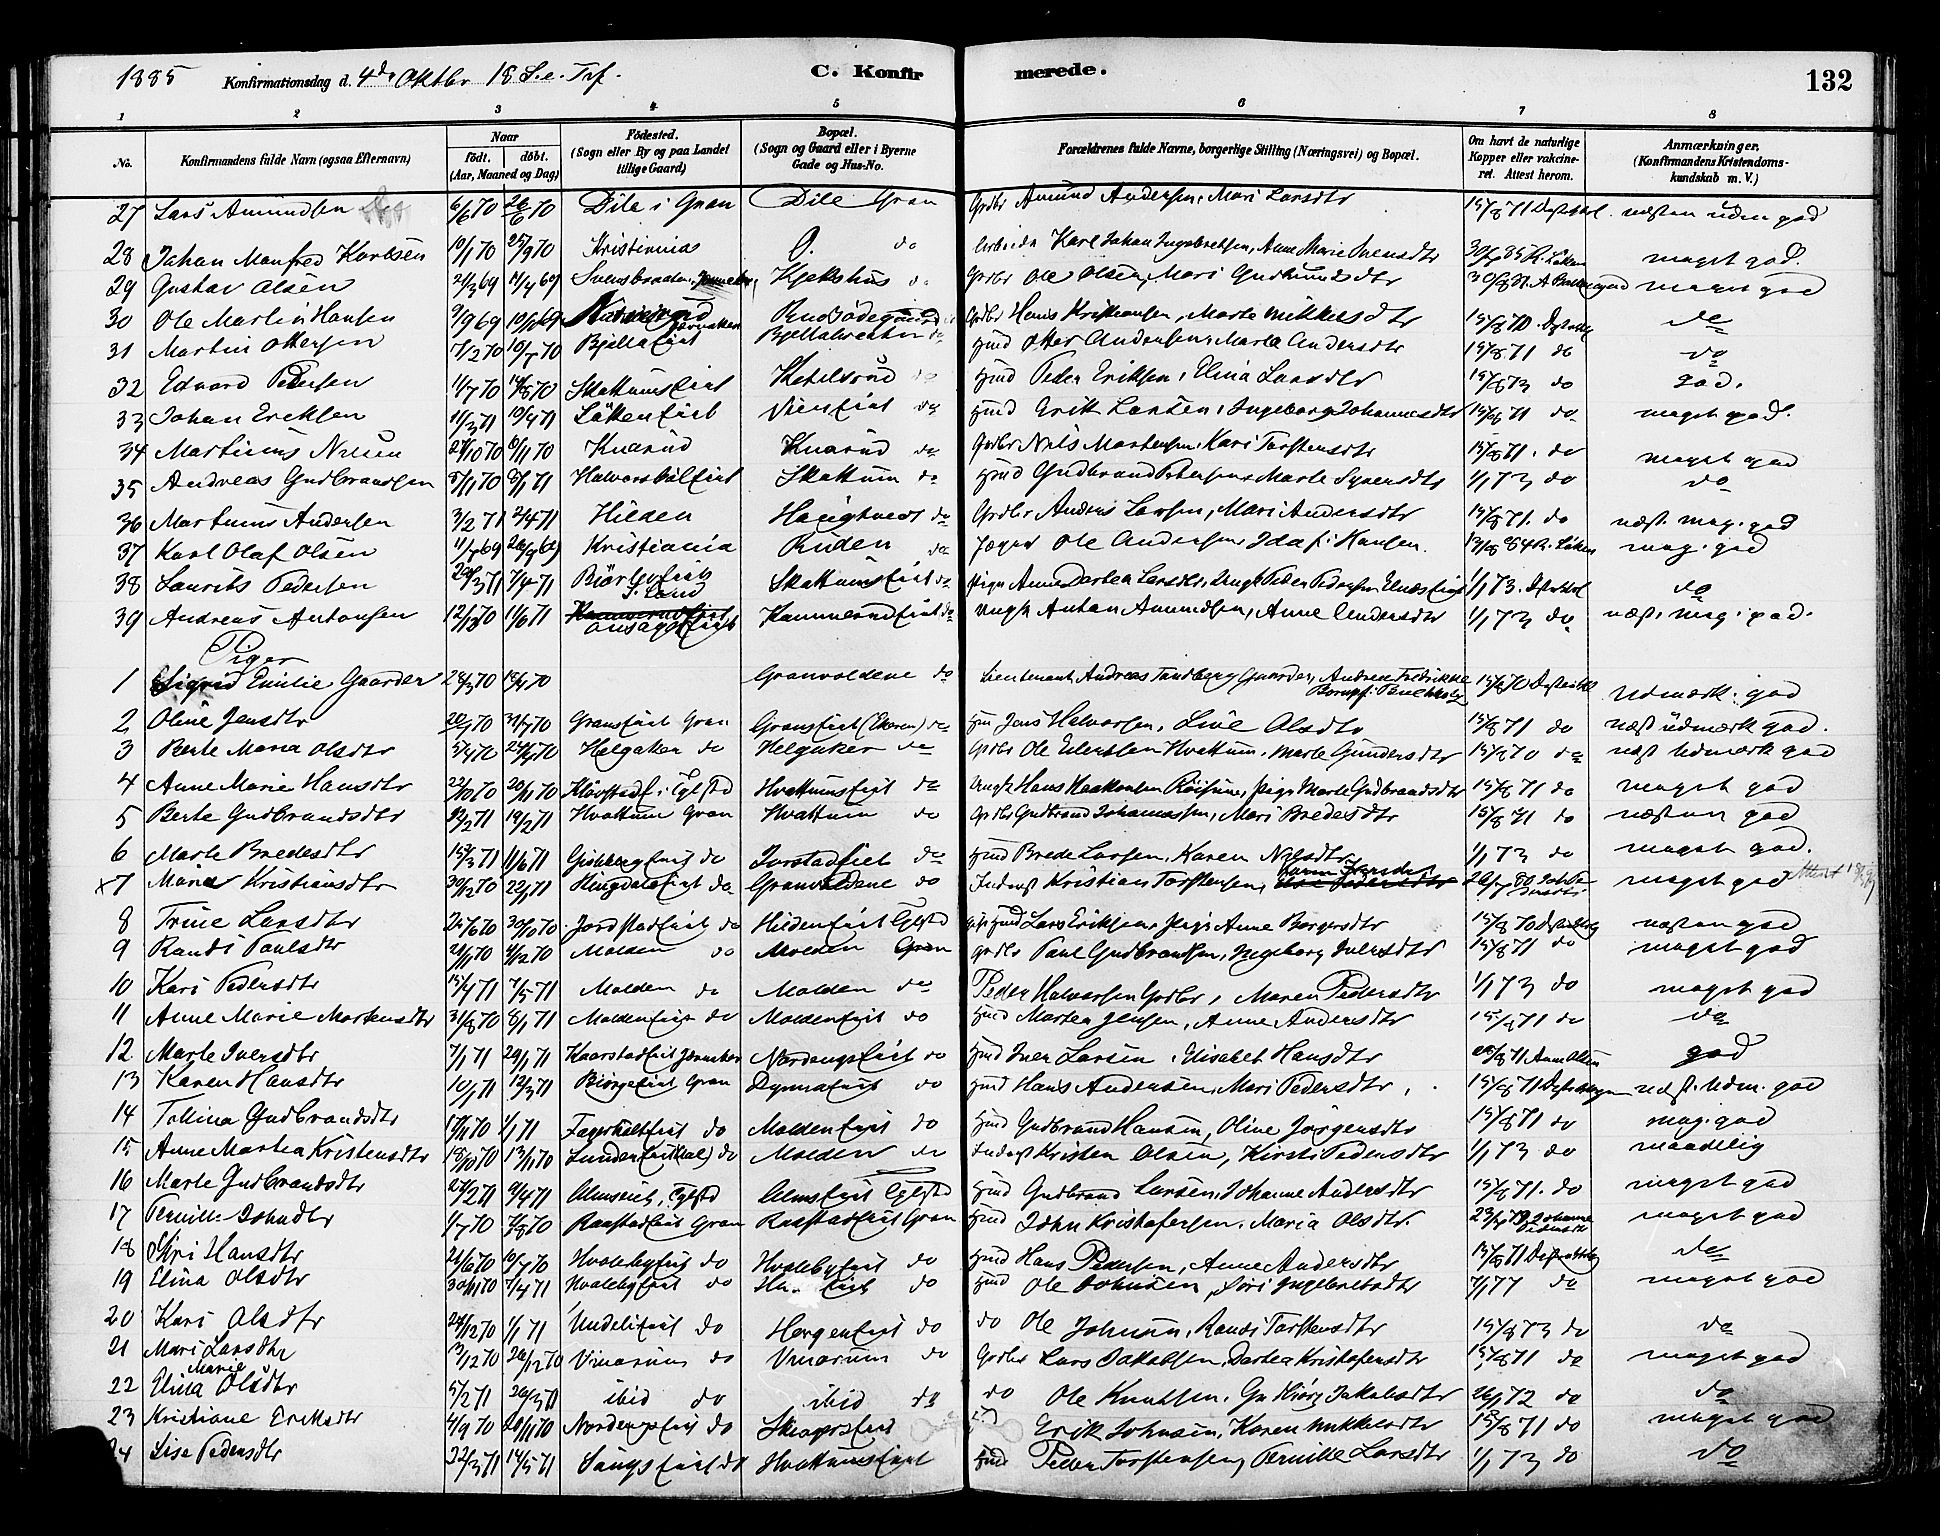 1885 Konfirmationsdag d. 4de Oktbr 18 S. e. Tref. C. Konfirmerede. 132
1 2 3 4 5 6 7 8
No. Konfirmandens fulde Navn (ogsaa Efternavn) Naar födt. döbt. (Aar, Maaned og Dag) Födested. (Sogn eller By og paa Landet tillige Gaard) Bopæl. (Sogn og Gaard eller i Byerne Gade og Hus-No. Forældrenes fulde Navne, borgerlige Stilling (Næringsvei) og Bopæl. Om havt de naturlige Kopper eller vakcineret. Attest herom. Anmærkninger. (Konfirmandens Kristendomskundskab m. V.)
27 Lars Amundsen 6/6 70 26/6 70 Dile i Gran Dile Gran Grdbr Amund Andersen, Mari Larsdtr 15/8 71 næsten uden god
28 Johan Manfred Karlsen 10/1 70 25/9 70 Kristiania do Arbeider Karl Johan Ingebretsen, Anne Marie Svensdtr meget god.
29 Gustav Olsen 21/3 69 11/4 69 Kjekshus do Grdbr Ole Olsen, Mari Gudmundsdtr meget god
30 Ole Martin Hansen 9/9 69 Rudsödegaard Grdbr Hans Kristiansen, Marte Mikkelsdtr 15/8 70 do
31 Martin Ottersen 17/2 70 Bjellaeiet Hmd Otter Andersen, Marte Andersdtr 15/8 71 do do
32 Edvard Pedersen 11/7 70 14/8 70 Skattumseiet Ketilsrud do Hmd Peder Eriksen, Elina Larsdtr 15/8 73 do god.
33 Johan Eriksen 11/3 71 10/4 71 Lökkeneiet Vieneiet do Hmd Erik Larsen, Ingeborg Johannesdtr 15/8 71 do meget god.
34 Martinus Nilsen 27/10 70 6/11 70 Knarud Knarud do Grdbr Nils Mortensen, Kari Torstensdtr 15/8 71. do meget god
35 Andreas Gudbrandsen 5/11 70 8/1 71 Halvorsböleiet Skattum do Hmd Gudbrand Petersen, Marte Syversdtr 1/1 73 do do
36 Martinus Andersen 3/2 71 2/4 71 Hilden Haugtvedt do Grdbr Anders Larsen, Mari Andersdtr 15/8 71. do næst. meg. god
37 Karl Olaf Olsen 11/7 69 26/9 69 Kristiania Ruden do Jæger Ole Andersen, Ida f. Hansen. 13/8 84 R. Löken meg. god
38 Laurits Pedersen 20/3 71 7/4 71 Björlveiet S. Land Skattumseiet do Pige Anne Dortea Larsdtr, Ungk Peder Pedersen 1/1 73. do
39 Andreas Antonsen 12/8 70 1/6 71 Kammerudeiet Kammerudeiet do Ungk Anton Amundsen, Anne Andersdtr 1/1 73 do næst. meg. god.
Piger
1 Sigrid Emilie Gaarder 28/3 70 18/4 70 Granvoldene do Lieutenant Andreas Tandberg Gaarder, Andrea Fredrikke 15/8 70 Udmærk. god
2 Oline Jensdtr 20/9 70 31/7 70 Granseiet Gran Granseiet do Hm Jens Halvorsen, Live Olsdtr 15/8 71 do næst udmærk god.
3 Berte Maria Olsdtr 5/4 70 24/4 70 Helgaker do Helgaker do Grdbr Ole Edertsen Hvattum, Marte Gundersdtr 15/8 70 do næst udmærk god
4 Anne Marie Hansdtr 22/10 70 20/11 70 Klövstad Hvattumseiet do Ungk Hans Haakonsen Röisum, Pige Marte Gudbrandsdtr 15/8 71 do meget god
5 Berte Gudbrandsdtr 2/2 71 19/2 71 Hvattum Gran Hvattum do Grdbr Gudbrand Johannessen, Mari Bredesdtr 15/8 71 do næsten god
6 Marte Bredesdtr 15/3 71 11/6 71 Gislebergeiet do Jorstadeiet do Hmd Brede Larsen, Karen Nilsdtr 1/1 73 do meget god.
x7 Maria Kristiansdtr 30/12 70 22/1 71 Ringdaleeiet do Granvoldene do Inderst Kristian Torstensen, meget god Attest
8 Trine Larsdtr 26/6 70 30/10 70 Jordstadeiet do Hildeneiet Tglstd gift Hmd Lars Eriksen, Pige Anne Borgersdtr 15/8 70 næsten god
9 Randi Paulsdtr 21/1 70 4/2 70 Molden do Molden Gran Grdbr Paul Gudbrandsen, Ingeborg Iversdtr 15/8 71 do meget god
10 Kari Pedersdtr 15/4 71 7/5 71 Molden do Molden do Peder Halvorsen Grdbr, Maren Pedersdtr 1/1 73 do meget god
11 Anne Marie Mortensdtr 31/8 70 8/1 71 Moldeneiet do Moldeneiet do Hmd Morten Jensen, Anne Andersdtr 15/8 71 do do
12 Marte Iversdtr 7/1 71 29/1 71 Kaarstadeiet Jevnaker Nordengseiet do Hmd Iver Larsen, Elisabet Hansdtr god
13 Karen Hansdtr 10/1 71 12/3 71 Biörgeeiet Gran Dynnaeiet do Hmd Hans Andersen, Mari Pedersdtr, 15/8 71 næst. udm. god
14 Tollina Gudbrandsdtr 17/11 70 1/1 71 Fagerhölteiet do Moldeneiet do Hmd Gudbrand Hansen, Oline Jörgensdtr 15/8 71 do meg. god
15 Anne Martea Kristensdtr 18/10 70 13/11 70 Lundereiet do Molden do Inderst Kristen Olsen, Kirsti Pedersdtr 1/1 73 do maadelig
16 Marte Gudbrandsdtr 27/2 71 9/4 71 Almseiet, Tglstd Almseiet Tglstd Hmd Gudbrand Larsen, Johanne Andersdtr 15/8 71. do meget god
17 Pernille Johnsdtr 1/7 70 7/8 70 Raastadeiet Gran Raastadeiet Gran Hmd John Kristofersen, Maria Olsdtr. meget god
18 Siri Hansdtr 21/6 70 10/7 70 Hvalebyeiet do Hvalebyeiet do Hmd Hans Pedersen, Anne Andersdtr 15/8 71 do
19 Elina Olsdtr 30/11 70 7/4 71 Hvalebyeiet do do Hmd Ole Johnsen, Siri Ingebretsdtr 7/1 77 do meget god
20 Kari Olsdtr 24/12 70 1/1 71 Undelieiet do Horgeneiet do do Ole Johnsen, Randi Torstensdtr 15/8 73 do do
21 Mari Larsdtr 13/12 70 26/12 70 Vinarum do Vinarum do Grdbr Lars Jakobsen, Dortea Kristofersdtr 15/8 71 do meget god
22 Elina Marie Olsdtr 5/2 71 26/3 71 ibid do ibid do do Ole Knutsen, Gudbjörg Jakobsdtr 26/1 72 do do
23 Kristiane Eriksdtr 4/9 70 20/11 70 Nordengseiet do Skiagerseiet Erik Johnsen, Karen Mikkelsdtr 15/8 71 do meget god
24 Lise Pedersdtr 22/3 71 14/5 71 Sangseiet do Hvattumseiet Hmd Peder Torstensen, Pernille Larsdtr 1/1 73 do do